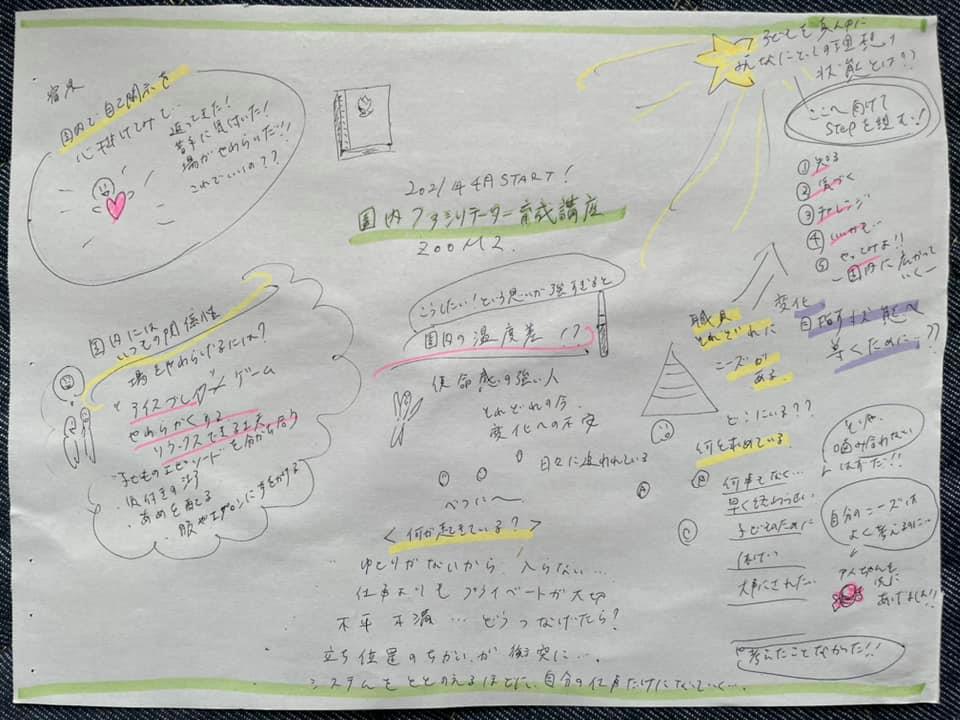 宿題
園内で自己開示を
心掛けてみて…
迫ってきた!
苦手に気付いた!
場がやわらいだ!!
これでいいの??
2021年4月START!
園内ファシリテーター育成講座
ZOOM2.
子どもを真ん中に
みんなにとっての理想の
状態とは??
ここへ向けて
Stepを組む!
① 知る
② 気づく
③ チャレンジ
④
⑤ やってみよ!!
ー園内に広がって
いくー
園内には
いつもの関係性
場をやわらげるには?
アイスブレイク ゲーム
やわらかくする
リラックスできる工夫
"子どものエピソード"を分かち合う
・あめを配る
・服やエプロンに
こうしたい!という思いが強すぎると
園内の温度差!?
使命感の強い人
それぞれの今
変化への不安
日々に追われている
べつにー
<何が起きている?>
ゆとりがないから 入らない…
仕事よりも プライベートが大切
不平 不満 … どうつなげたら?
立ち位置のちがいが 衝突に…
システムをととのえるほどに、自分の仕事だけになっていく…
職員
それぞれに
ニーズが
ある
変化
目指す状態へ
導くために…??
どこにいる??
何を求めている
A
B
C
何事もなく…
早く終わりたい
子どものために
大事にされたい
そりゃ
噛み合わない
はずだ!!
自分のニーズは
よく考えるのに…
アメちゃんを
先に
あげましょ!!
"考えたことなかった!!